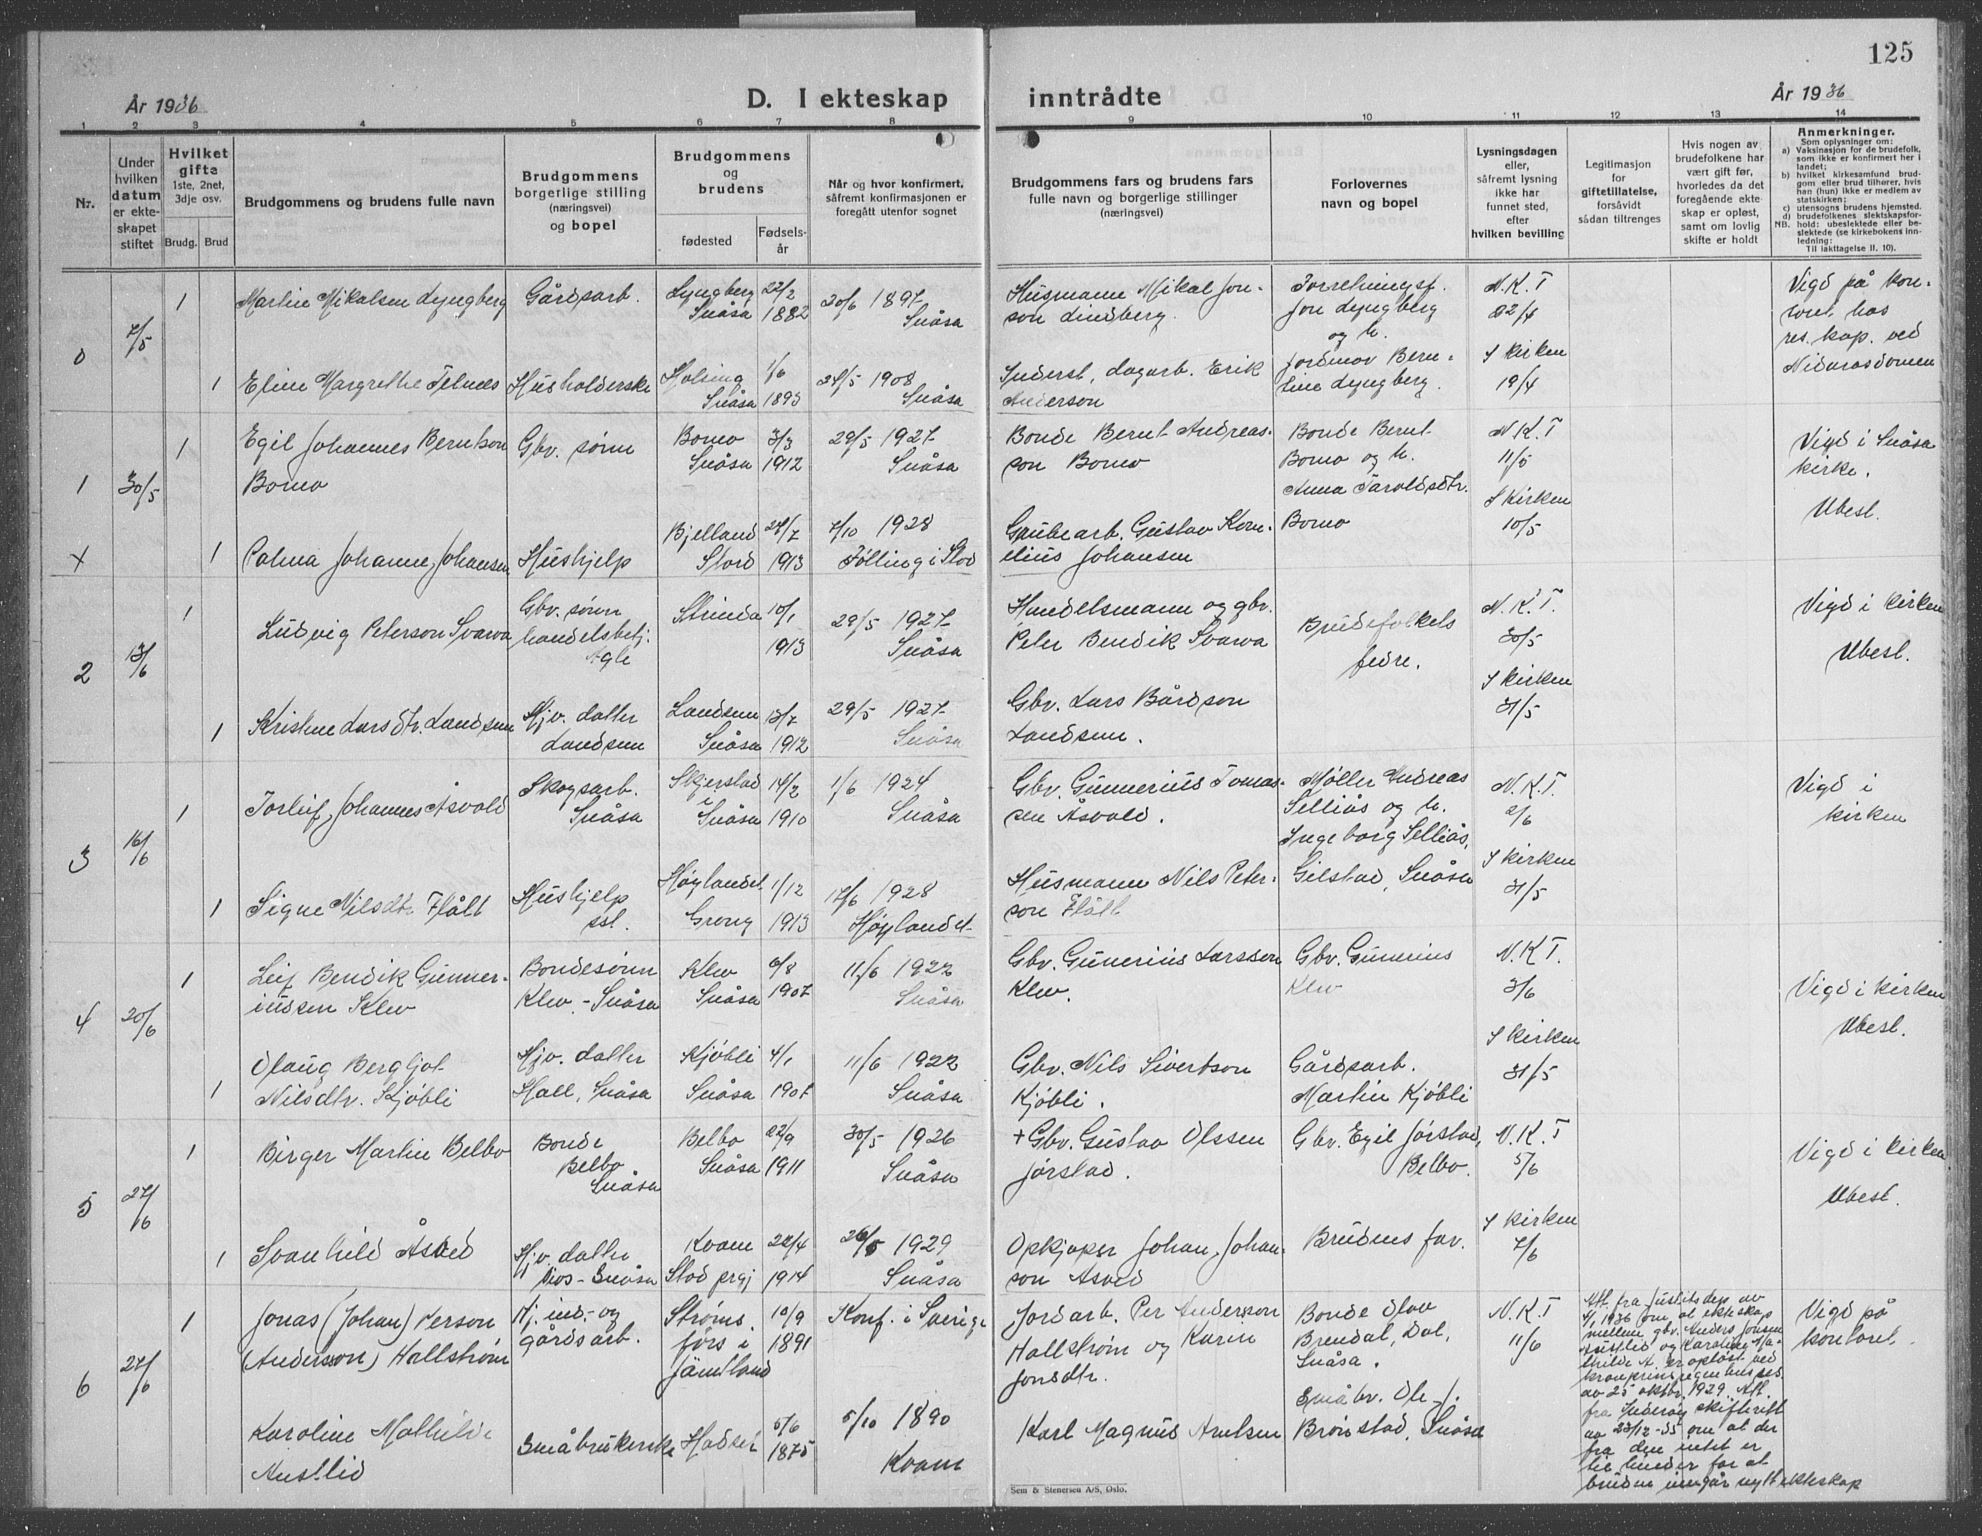 125
År 1936
D. I ekteskap inntrådte
År 1936
1 2 3 4 5 6 7 8 9 10 11 12 13 14
Nr.
Under hvilken datum er ekteskapet stiftet
Hvilket gifte 1ste, 2net, 3dje osv.
Brudg. Brud
Brudgommens og brudens fulle navn
Brudgommens borgerlige stilling (næringsvei) og bopel
Brudgommens og brudens
fødested
Fødselsår
Når og hvor konfirmert, såfremt konfirmasjonen er foregått utenfor sognet
Brudgommens fars og brudens fars fulle navn og borgerlige stillinger (næringsvei)
Forlovernes navn og bopel
Lysningsdagen eller, såfremt lysning ikke har funnet sted, efter hvilken bevilling
Legitimasjon for giftetillatelse, forsåvidt sådan tiltrenges
Hvis nogen av brudefolkene har vært gift før, hvorledes da det foregående ekteskap er opløst, samt om lovlig skifte er holdt
Anmerkninger.
Som oplysninger om:
a) Vaksinasjon for de brudefolk, som ikke er konfirmert her i landet;
b) hvilket kirkesamfund brudgom eller brud tilhører, hvis han (hun) ikke er medlem av statskirken;
c) utensogns brudens hjemsted.
d) brudefolkenes slektskapsforhold: ubeslektede eller beslektede (se kirkebokens innledning:
NB. Til iakttagelse II. 10).
0 7/5
1 Martin Mikalsen Lyngberg
Gårdsarb.
Lyngberg Snåsa
22/2 1882
20/6 1897 Snåsa
Husmann Mikal Jonson Lindberg
Forretningsf. Jon Lyngberg og h. Jordmor Berntine Lyngberg.
N.K.T 22/4
S kirken 19/4
Vigd på kontoret hos res. kap. ved Nidarosdomen
1 Eline Margrethe Telnes
Husholderske
Holsing Snåsa
1/6 1893
24/5 1908 Snåsa
Inderst, dagarb. Erik Anderson
1 30/5
1 Egil Johannes Berntson Bomo
Gbr. sønn
Bomo Snåsa
3/3 1912
29/5 1927 Snåsa
Bonde Bernt Andreasson Bomo
Bonde Bernt Bomo og h. Anna Taroldsdtr. Bomo
N.K.T 11/5
S kirken 10/5
Vigd i Snåsa kirke.
Ubesl.
X
1 Palma Johanne Johansen
Hushjelp
Bjelland Stord
24/7 1913
7/10 1928 Følling i Stod
Grubearb. Gustav Kornelius Johansen
2 13/6
1 Ludvig Peterson Svarva
Gbr. sønn handelsbetj. Agle
Strinda
10/1 1913
29/5 1927 Snåsa
Handelsmann og gbr. Peter Bendik Svarva
Brudefolkets fedre.
N.K.T. 30/5
S kirken 31/5
Vigd i kirken
Ubesl.
1 Kristine Larsdtr. Landsem
Hjv. datter Landsem
Landsem Snåsa
13/7 1912
29/5 1927 Snåsa
Gbr. Lars Bårdson Landsem.
3 16/6
1 Torleif Johannes Åsvold
Skogsarb. Snåsa
Skjerstad i Snåsa
14/2 1910
1/6 1924 Snåsa
Gbr. Gunnerius Tomassen Åsvold.
Møller Andreas Selliås og h. Ingeborg Selliås, Gilstad, Snåsa
N.K.T. 2/6
S kirken 31/5
Vigd i kirken
1 Signe Nilsdtr Flått
Hushjelp sst.
Høylandet Grong
1/12 1913
17/6 1928 Høylandet
Husmann Nils Peterson Flått
4 20/6
1 Leif Bendik Gunneriussen Klev
Bondesønn Klev - Snåsa
Klev Snåsa
6/8 1907
11/6 1922 Snåsa
Gbr. Gunerius Larssen Klev.
Gbr. Gunerius Klev
N.K.T 3/6
S kirken 31/5
Vigd i kirken
Ubesl.
1 Olaug Bergljot Nilsdtr. Kjøbli
Hjv. datter Hall, Snåsa
Kjøbli Snåsa
4/1 1907
11/6 1922 Snåsa
Gbr. Nils Sivertson Kjøbli.
Gårdsarb. Martin Kjøbli
5 27/6
1 Birger Martin Belbo
Bonde Belbo Snåsa
Belbo Snåsa
22/9 1911
30/5 1926 Snåsa
+ Gbr. Gustav Olssen Jørstad.
Gbr. Egil Jørstad, Belbo.
N.K.T 5/6
S kirken 7/6
Vigd i kirken
Ubesl.
1 Svanhild Åsved
Hjv. datter Vios - Snåsa
Kvam Stod prgj
22/4 1914
26/5 1929 Snåsa
Opkjøper Johan Johanson Åsved
Brudens far.
6 27/6
1 Jonas (Johan) Person (Andersson) Hallstrøm
Hj. ind. og gårdsarb.
Strøms førs i Jämtland
10/9 1891
Konf. i Sverige
Jordarb. Per Andersson Hallstrøm og Karin Jonsdtr.
Bonde Olav Brendal, Dal, Snåsa.
Småbr. Ole J. Brønstad, Snåsa
N.K.T 11/6
Att. fra Justitsdep av 4/1 1936 om at ekteskap mellem gbr. Anders Jonsen Austlid og Karoline Mathilde A. er opløst ved kronprinsregentens res. av 25 oktbr. 1929. Att. fra Inderøy skifterett av 23/12-35 om at der fra den intet er til hinder for at bruden inngår nytt ekteskap
Vigd på kontoret.
Karoline Mathilde Austlid
Småbrukerske
5/6 1875
5/10 1890 Kvam
Karl Magnus Arntsen
Sem & Stenersen A/S, Oslo.